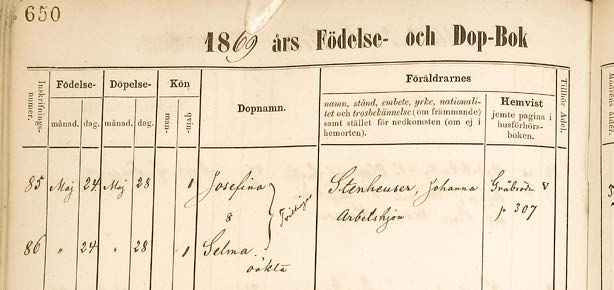 650
1869 års Födelse- och Dop-Bok
Inskrifnings-
numer.
Födelse-
månad. dag.
Döpelse-
månad. dag.
Kön
man-
qvin-
Dopnamn.
Föräldrarnes
namn, stånd, embete, yrke, nationali-
tet och trosbekännelse (om främmande)
samt stället för nedkomsten (om ej i
hemorten).
Hemvist
jemte pagina i
husförhörs-
boken.
Tillhör Adel.
85 Maj 24 Maj 28 1 Josefina Stenheuser, Johanna Gråbröde V
& Tvillingar Arbetshjon p 307
86 " 24 " 28 1 Selma
oäkta